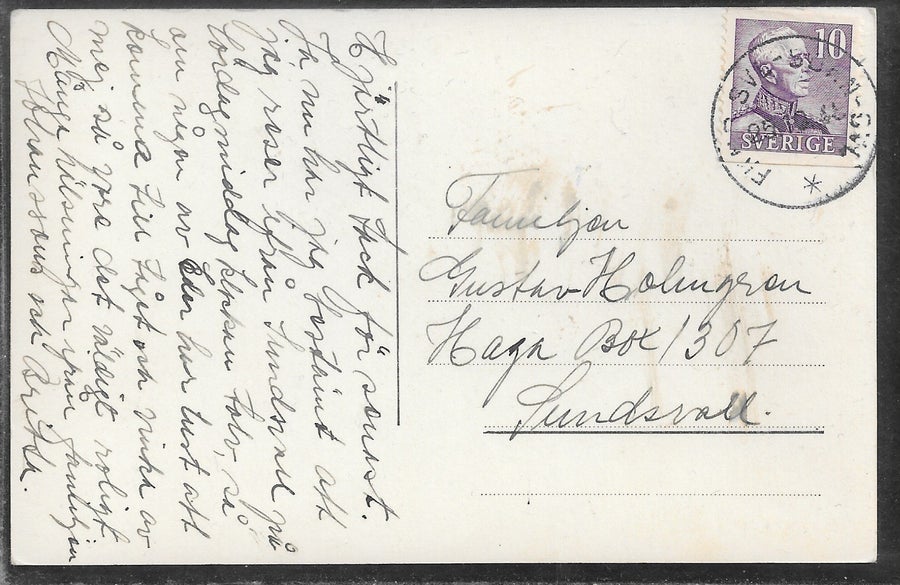 Hjärtligt tack för senast.
Ja nu har jag bestämt att
jag reser ifrån Sundsvall på
Lördagmiddag klockan tolv, så
om någon av Eder har lust att
komma till tåget och vinka av
mej så vore det väldigt roligt
Många hälsningar från familjen
Johanssons och Britta.
10
SVERIGE
Familjen
Gustav Holmgren
Haga Box 1307
Sundsvall.